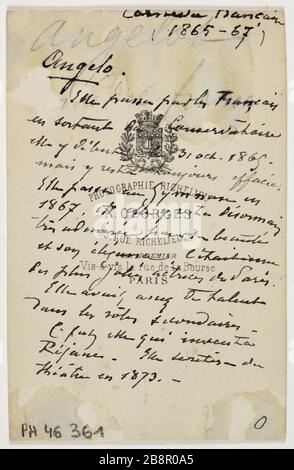 Comédie Française
1865-67
Angelo
Angelo.
Elle passa par les Français
en sortant du Conservatoire
elle y débuta 31 oct. 1865
mais y resta toujours effacée
PHOTOGRAPHIE RICHELIEU
Elle passa au Gymnase en
1867, 
A. GEORGES
très admirée pour sa beauté
RUE RICHELIEU
et son élégance. C'était une
PREMIER
des plus jolies actrices de Paris.
Vis-à-vis la rue de la Bourse
PARIS
Elle avait assez de talent
dans les rôles secondaires.
C'est elle qui inventa
Réjane. Elle se retira du
théâtre en 1873.
PH 46 361
O
alamy
Image ID: 2B8R0A5
www.alamy.com